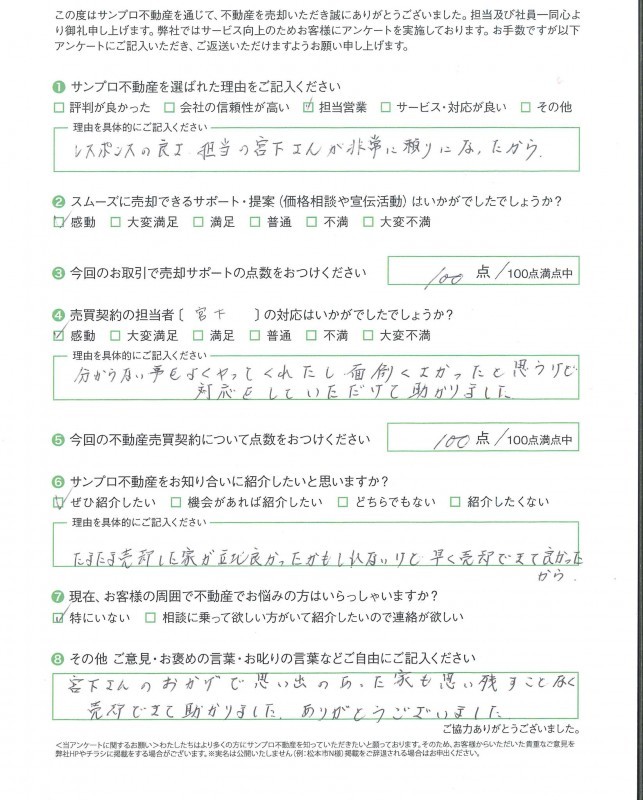 この度はサンプロ不動産を通じて、不動産を売却いただき誠にありがとうございました。担当及び社員一同心よ
り御礼申し上げます。弊社ではサービス向上のためお客様にアンケートを実施しております。お手数ですが以下
アンケートにご記入いただき、ご返送いただけますようお願い申し上げます。
❶ サンプロ不動産を選ばれた理由をご記入ください
□ 評判が良かった □ 会社の信頼性が高い ☑ 担当営業 □ サービス・対応が良い □ その他
理由を具体的にご記入ください
レスポンスの良さ、担当の宮下さんが非常に頼りになったから。
❷ スムーズに売却できるサポート・提案(価格相談や宣伝活動)はいかがでしたでしょうか?
☑ 感動 □ 大変満足 □ 満足 □ 普通 □ 不満 □ 大変不満
❸ 今回のお取引で売却サポートの点数をおつけください 100 点/100点満点中
❹ 売買契約の担当者〔 宮下 〕の対応はいかがでしたでしょうか?
☑ 感動 □ 大変満足 □ 満足 □ 普通 □ 不満 □ 大変不満
理由を具体的にご記入ください
分からない事もよくやってくれたし、面倒くさかったと思うけど
対応をしていただけて助かりました
❺ 今回の不動産売買契約について点数をおつけください 100 点/100点満点中
❻ サンプロ不動産をお知り合いに紹介したいと思いますか?
☑ ぜひ紹介したい □ 機会があれば紹介したい □ どちらでもない □ 紹介したくない
理由を具体的にご記入ください
たまたま売却した家が立地良かったかもしれないけど、早く売却できて良かった
から。
❼ 現在、お客様の周囲で不動産でお悩みの方はいらっしゃいますか?
☑ 特にいない □ 相談に乗って欲しい方がいて紹介したいので連絡が欲しい
❽ その他 ご意見・お褒めの言葉・お叱りの言葉などご自由にご記入ください
宮下さんのおかげで思い出のあった家も思い残すことなく
売却できて助かりました。ありがとうございました。
ご協力ありがとうございました。
<当アンケートに関するお願い>わたしたちはより多くの方にサンプロ不動産を知っていただきたいと願っております。そのため、お客様からいただいた貴重なご意見を
弊社HPやチラシに掲載をする場合がございます。※実名は公開いたしません(例:松本市N様)掲載をご辞退される場合はお申出ください。